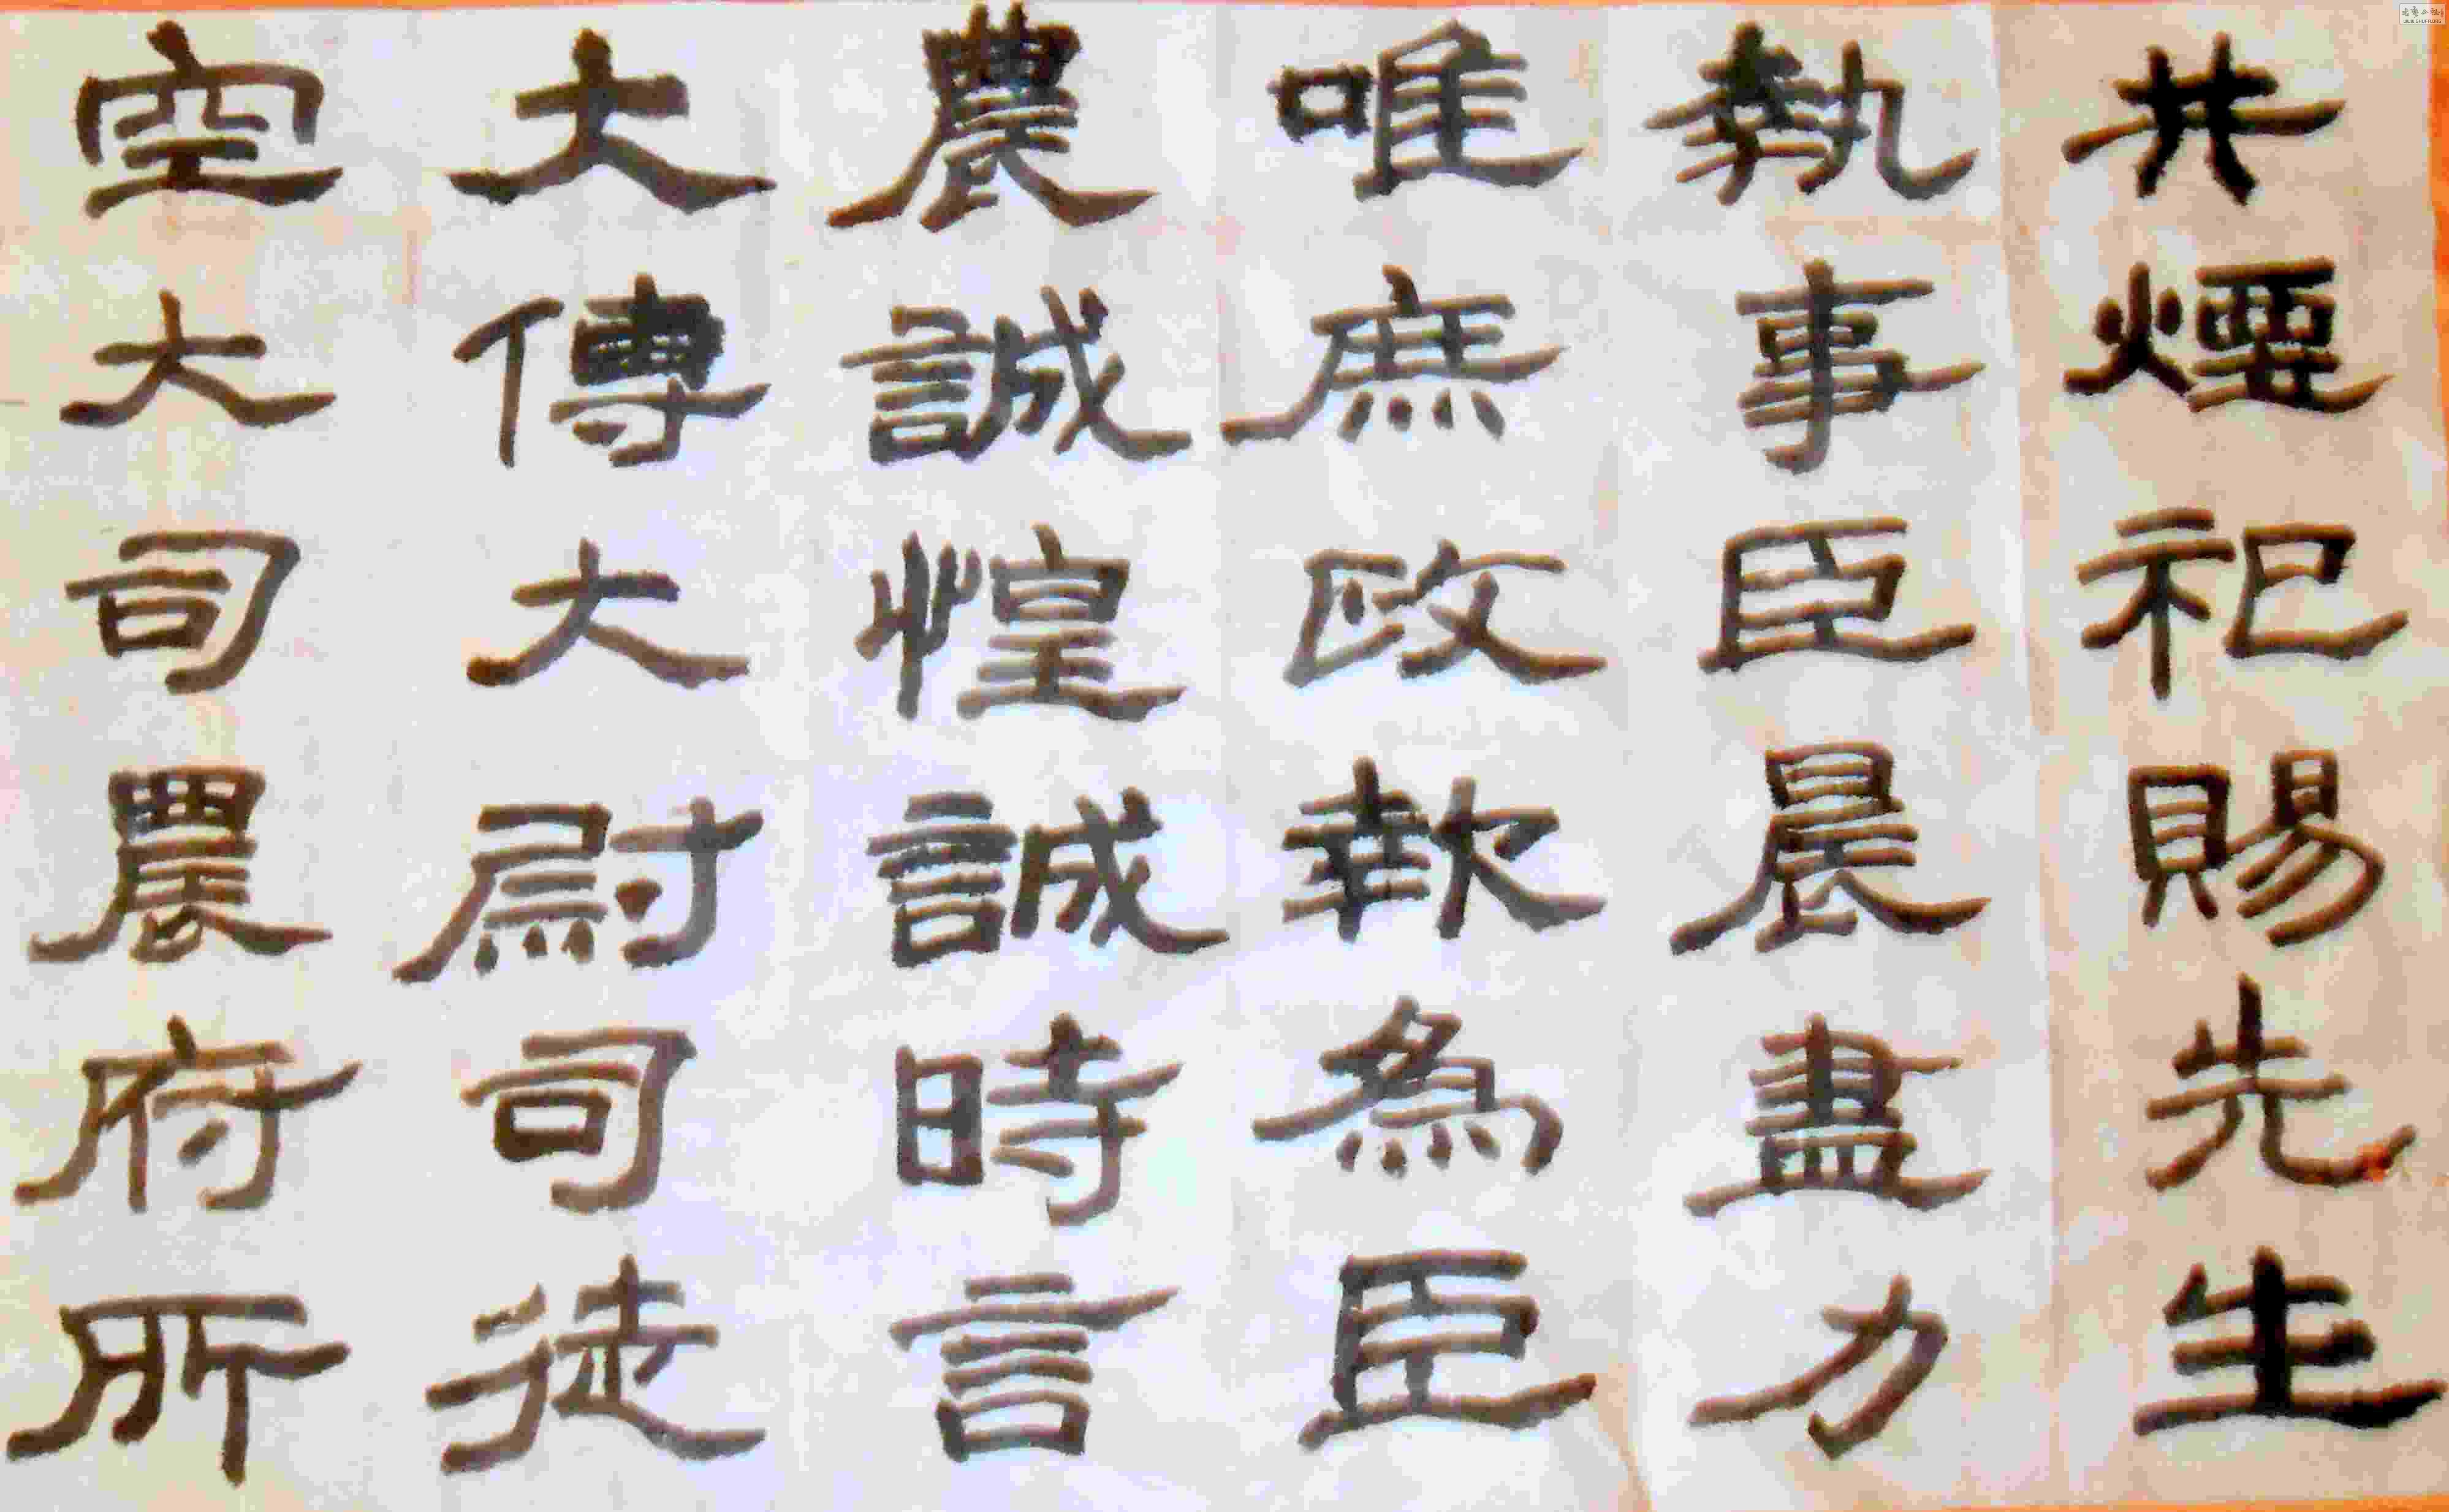 共煙祀賜先生
執事臣晨盡力
唯庶政報為臣
農誠惶誠時言
大傅大尉司徒
空大司農府所